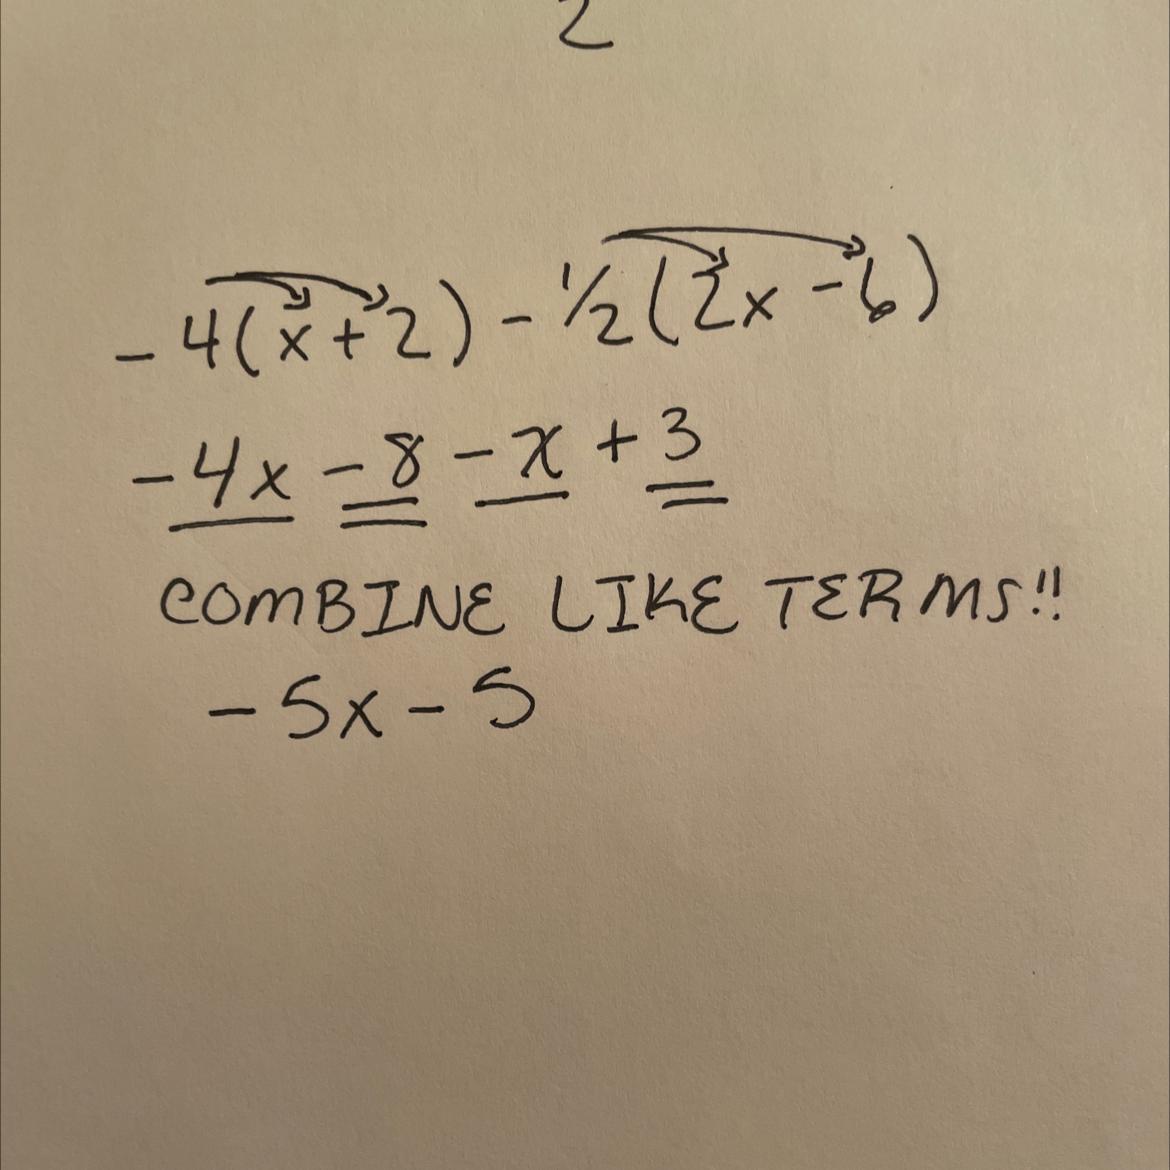 2
-4(x+2)-1/2(2x-6)
-4x-8-x+3
COMBINE LIKE TERMS!!
-5x-5